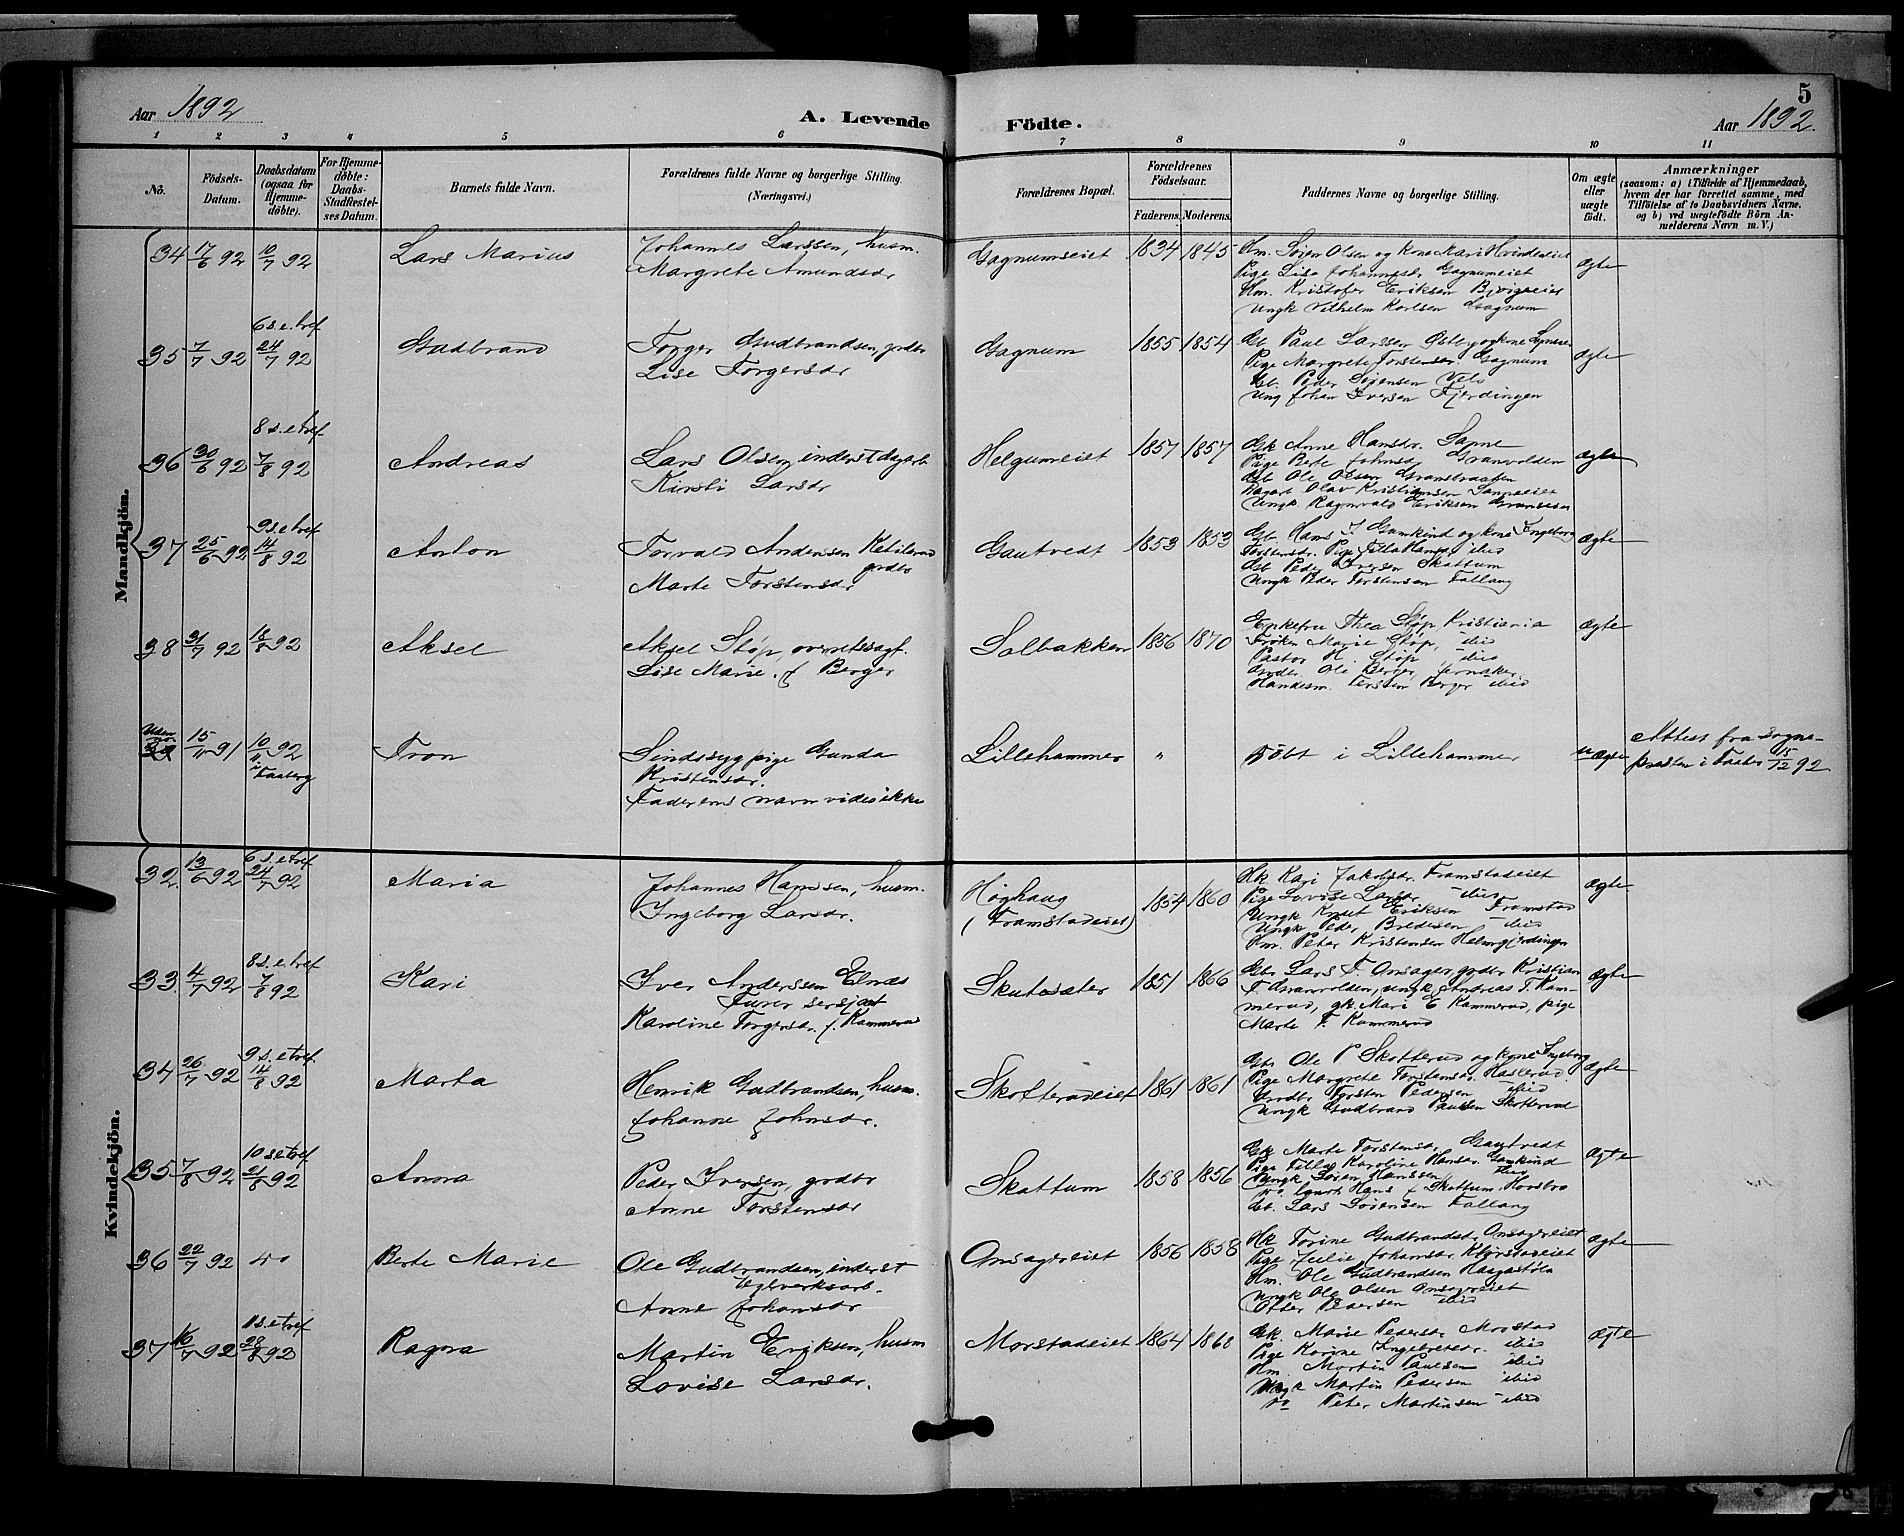 Aar 1892
A. Levende
Födte.
5
Aar 1892.
1 2 3 4 5 6 7 8 9 10 11
No.
Födsels-Datum.
Daabsdatum (ogsaa for Hjemmedöbte).
For Hjemmedöbte: Daabs-Stadfæstelses Datum.
Barnets fulde Navn.
Forældrenes fulde Navne og borgerlige Stilling.
(Næringsvei.)
Forældrenes Bopæl.
Forældrenes Födselsaar.
Faderens. Moderens.
Faddernes Navne og borgerlige Stilling.
Om ægte eller uægte födt.
Anmærkninger
(saasom: a) i Tilfælde af Hjemmedaab, hvem der har forrettet samme, med Tilföielse af to Daabsvidners Navne, og b) ved uægtefödte Börn Anmelderens Navn m. V.)
Mandkjön.
34 17/6 92 10/7 92 Lars Marius
Johannes Larssen, husm.
Margrete Amundsdr
Gagnumseiet 1834 1845
Hm. Søren Olsen og Kone Mari
Pige Lise Johannesdr Gagnumeiet
Hm. Kristofer Eriksen
Ungk Vilhelm Karlsen Gagnum
ægte
6 s. e. tref.
35 7/7 92 24/7 92 Gudbrand
Torger Gudbrandsen, grdbr
Lise Torgersdr
Gagnum 1855 1854
Gb. Paul Larssen Østby og kone
Pige Margrete Torstensdr. Gagnum
Gb. Peder Sørensen Velo
Ung Johan Iversen Fjerdingen
ægte
8 s. e. tref.
36 30/6 92 7/8 92 Andreas
Lars Olsen, inderst dagarb
Kirsti Larsdr
Helgumeiet 1857 1857
Gk Anne Hansdr. Sanne
Pige Berte Johnsdr Granvolden
Gb Ole Olsen
Dagarb Olav Kristiansen Sanneeiet
Ungk. Ragnvald Eriksen
ægte
9 s. e. tref
37 25/6 92 14/8 92 Anton
Torvald Andersen Ketilerud
grdbr
Marte Torstensdr
Gautvedt 1853 1853
Gb. Hans J. Gamkind og kone Ingeborg
Torstensdr. Pige Tilla Hansdr ibid
Gb Peder Iversen Skattum
Ungk Peder Torstensen Fallang
ægte
38 31/7 92 18/8 92 Aksel
Aksel Støp, overretssagf.
Lise Marie f. Berger
Solbakken 1856 1870
Enkefru Thea Støp, Kristiania
Frøken Marie Støp, ibid
Pastor H. Støp ibid
Grdbr. Ole Berger, Jevnaker.
Handelsm. Torsten Berger ibid
ægte
Uden no.
15/11 91 10/11 92 i Faaberg Tron
Sindssyg pige Gunda
Kristensdr.
Faderens navn vides ikke
Lillehammer "
Døbt i Lillehammer
uægte
Attest fra sogne-
presten i Faaber 15/12 92
Kvindekjön.
6 s. e. tref
32 13/6 92 24/7 92 Maria
Johannes Hanssen, husm.
Ingeborg Larsdr.
Høghaug
(Framstadeiet)
1854 1860
Hk Kari Jakobsdr. Framstadeiet
Pige Lovise Larsdr ibid
Ungk Knut Eriksen Framstad
Ungk Peder Bredesen ibid
Hm. Peter Kristensen Helmgjerdingen
ægte
8 s. e. tref
33 4/7 92 7/8 92 Kari
Iver Anderssen Elnæs
Furer sersjant
Karoline Torgersdr. f. Kammerud
Skutesæter 1851 1866
Gbr Lars T. Onsager, grdbr Kristian
T. Granvolden, ungk. Andreas T. Kam-
merud, gk. Mari E Kammerud, pige
Marte T. Kammerud
ægte
9 s. e. tref.
34 26/7 92 14/8 92 Marta
Henrik Gudbrandsen, husm.
Johanne Johnsdr.
Skotterudeiet 1861 1861
Gbr Ole P Skotterud og kone Ingeborg
Pige Margrete Torstensdr. Haskerud
Grdbr Torsten Pedersen ibid
Ungk Gudbrand Paulsen Skotterud
ægte
10 s e tref
35 7/8 92 21/8 92 Anna
Peder Iversen, grdbr
Anne Torstensdr
Skattum 1858 1856
Gk Marte Torstensdr, Gautvedt
Pige Tilla Karoline Hansdr Gamkind
Ungk Søren Hanssen ibid
do Hans Skattum
Gb. Lars Sørensen Fallang
ægte
36 22/7 92 do Berte Marie
Ole Gudbrandsen, inderst
Teglverksarb.
Anne Johansdr
Onsagereiet 1856 1858
Hk Torine Gudbrandsdr. Onsagereiet
Pige Julie Johansdr
Hm. Ole Gudbrandsen
Ungk Ole Olsen Onsagereiet
Peder Pedersen ibid
ægte
11 s. e. tref
37 16/7 92 28/8 92 Ragna
Martin Eriksen, husm
Lovise Larsdr.
Morstadeiet 1864 1868
Gk. Marie Pedersdr Morstad
Pige Karine Ingebretsdr. ibid
Hm. Martin Paulsen ibid
Ungk Martin Pedersen ibid
do Peter Martinsen ibid
ægte